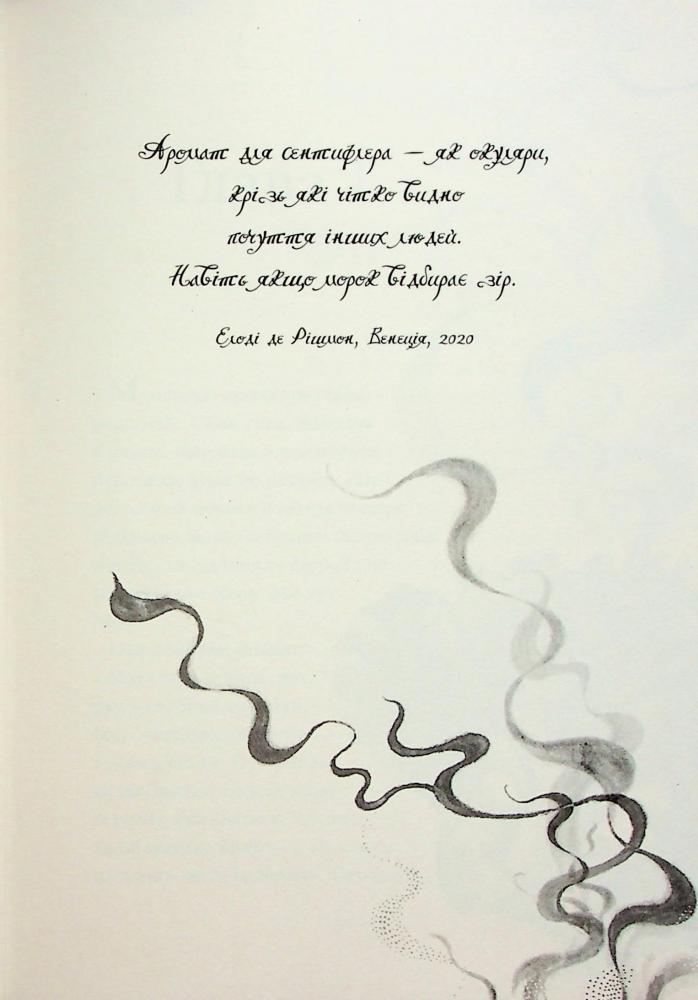 Аромат для сентифлера — як окуляри,
крізь які чітко видно
почуття інших людей.
Навіть якщо морок відбирає зір.
Елоді де Рішмон, Венеція, 2020